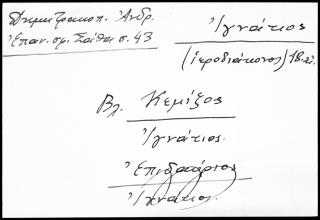 Δημητρακοπ. Ἀνδρ.
Ἐπαν. σμ. Σάθα σ. 43
Ἰγνάτιος
(ἱεροδιάκονος) 18
Βλ. Κεμίζος
Ἰγνάτιος.
Ἐπιδαύριος
Ἰγνάτιος.